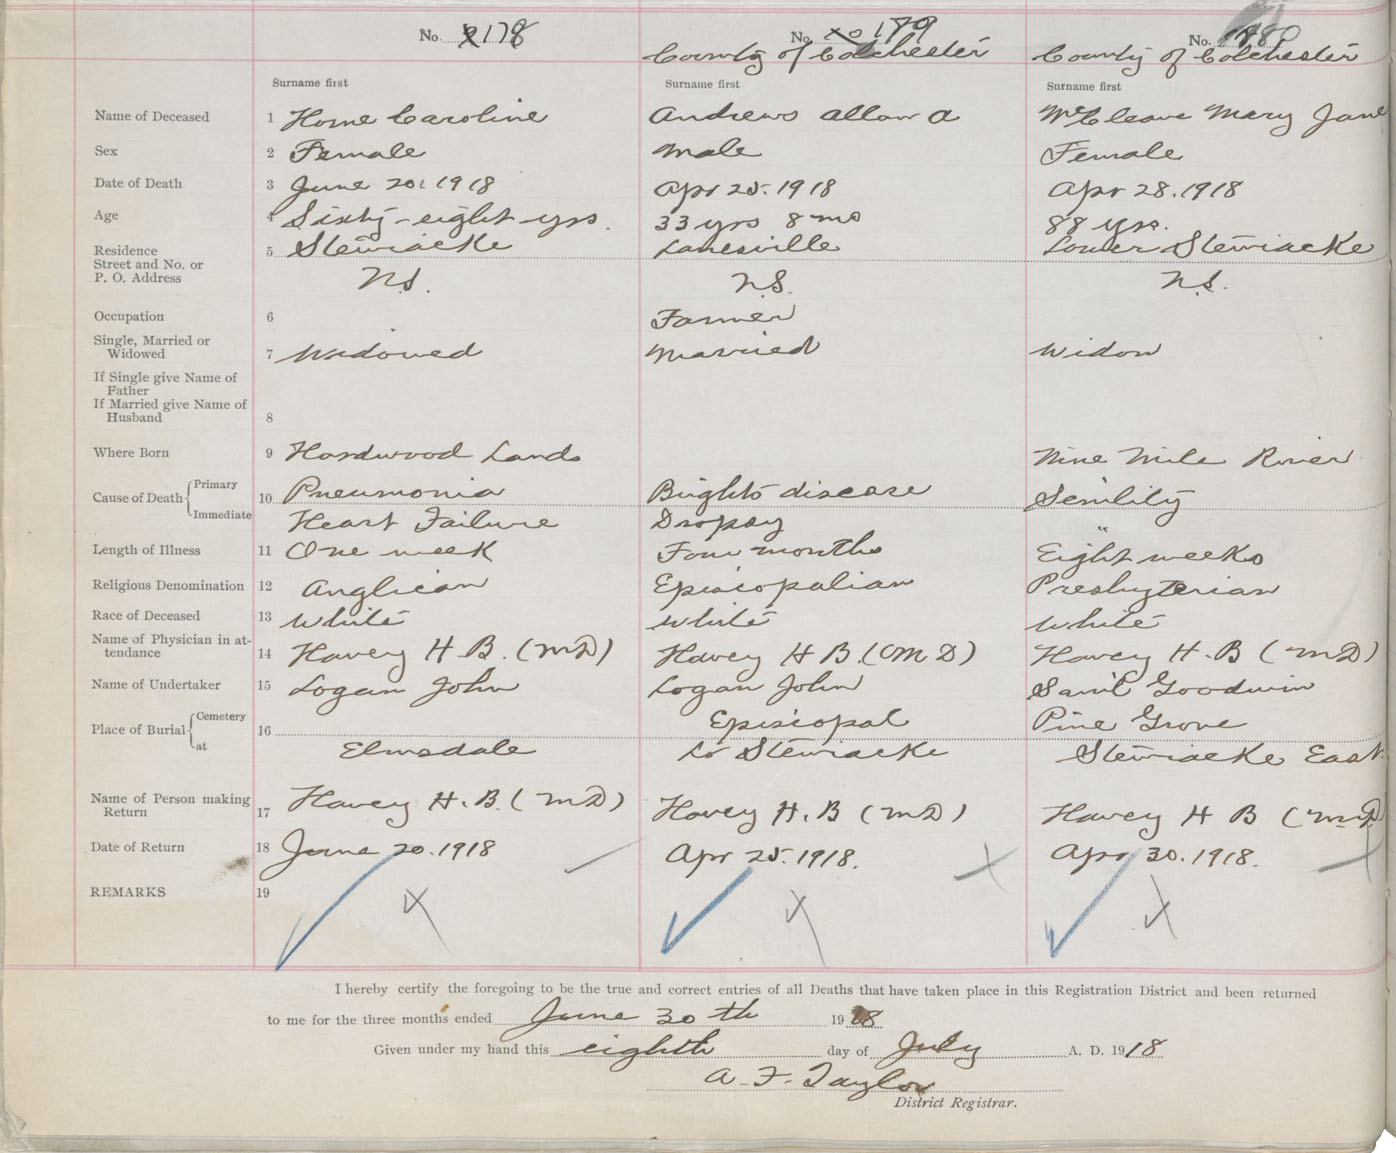 No. 2178
No. 20 179
No. 180
County of Colchester
County of Colchester
Surname first
Surname first
Surname first
Name of Deceased 1 Horne Caroline
Andrews Allan A
McCleave Mary Jane
Sex 2 Female
Male
Female
Date of Death 3 June 20. 1918
Apr 25. 1918
Apr 28. 1918
Age 4 Sixty-eight-yrs.
33 yrs 8 mo
88 yrs.
Residence
Street and No. or
P. O. Address
5 Stewiacke
N.S.
Lanesville
N.S.
Lower Stewiacke
N.S.
Occupation 6
Farmer
Single, Married or
Widowed
7 Widowed
Married
Widow
If Single give Name of
Father
If Married give Name of
Husband
8
Where Born 9 Hardwood Lands
Nine Mile River
Cause of Death { Primary
Immediate
10 Pneumonia
Heart Failure
Brights disease
Dropsy
Senility
"
Length of Illness 11 One week
Four months
Eight weeks
Religious Denomination 12 Anglican
Episcopalian
Presbyterian
Race of Deceased 13 White
White
White
Name of Physician in at-
tendance
14 Havey H B. (MD)
Havey H B. (MD)
Havey H. B (MD)
Name of Undertaker 15 Logan John
Logan John
Saml Goodwin
Place of Burial { Cemetery
at
16
Elmsdale
Episcopal
Lr Stewiacke
Pine Grove
Stewiacke East.
Name of Person making
Return
17 Havey H. B. (MD)
Havey H. B (MD)
Havey H B (MD)
Date of Return 18 June 20. 1918
Apr 25. 1918.
Apr 30. 1918.
REMARKS 19
I hereby certify the foregoing to be the true and correct entries of all Deaths that have taken place in this Registration District and been returned
to me for the three months ended June 30th 1918
Given under my hand this eighth day of July A. D. 1918
A. F. Taylor
District Registrar.